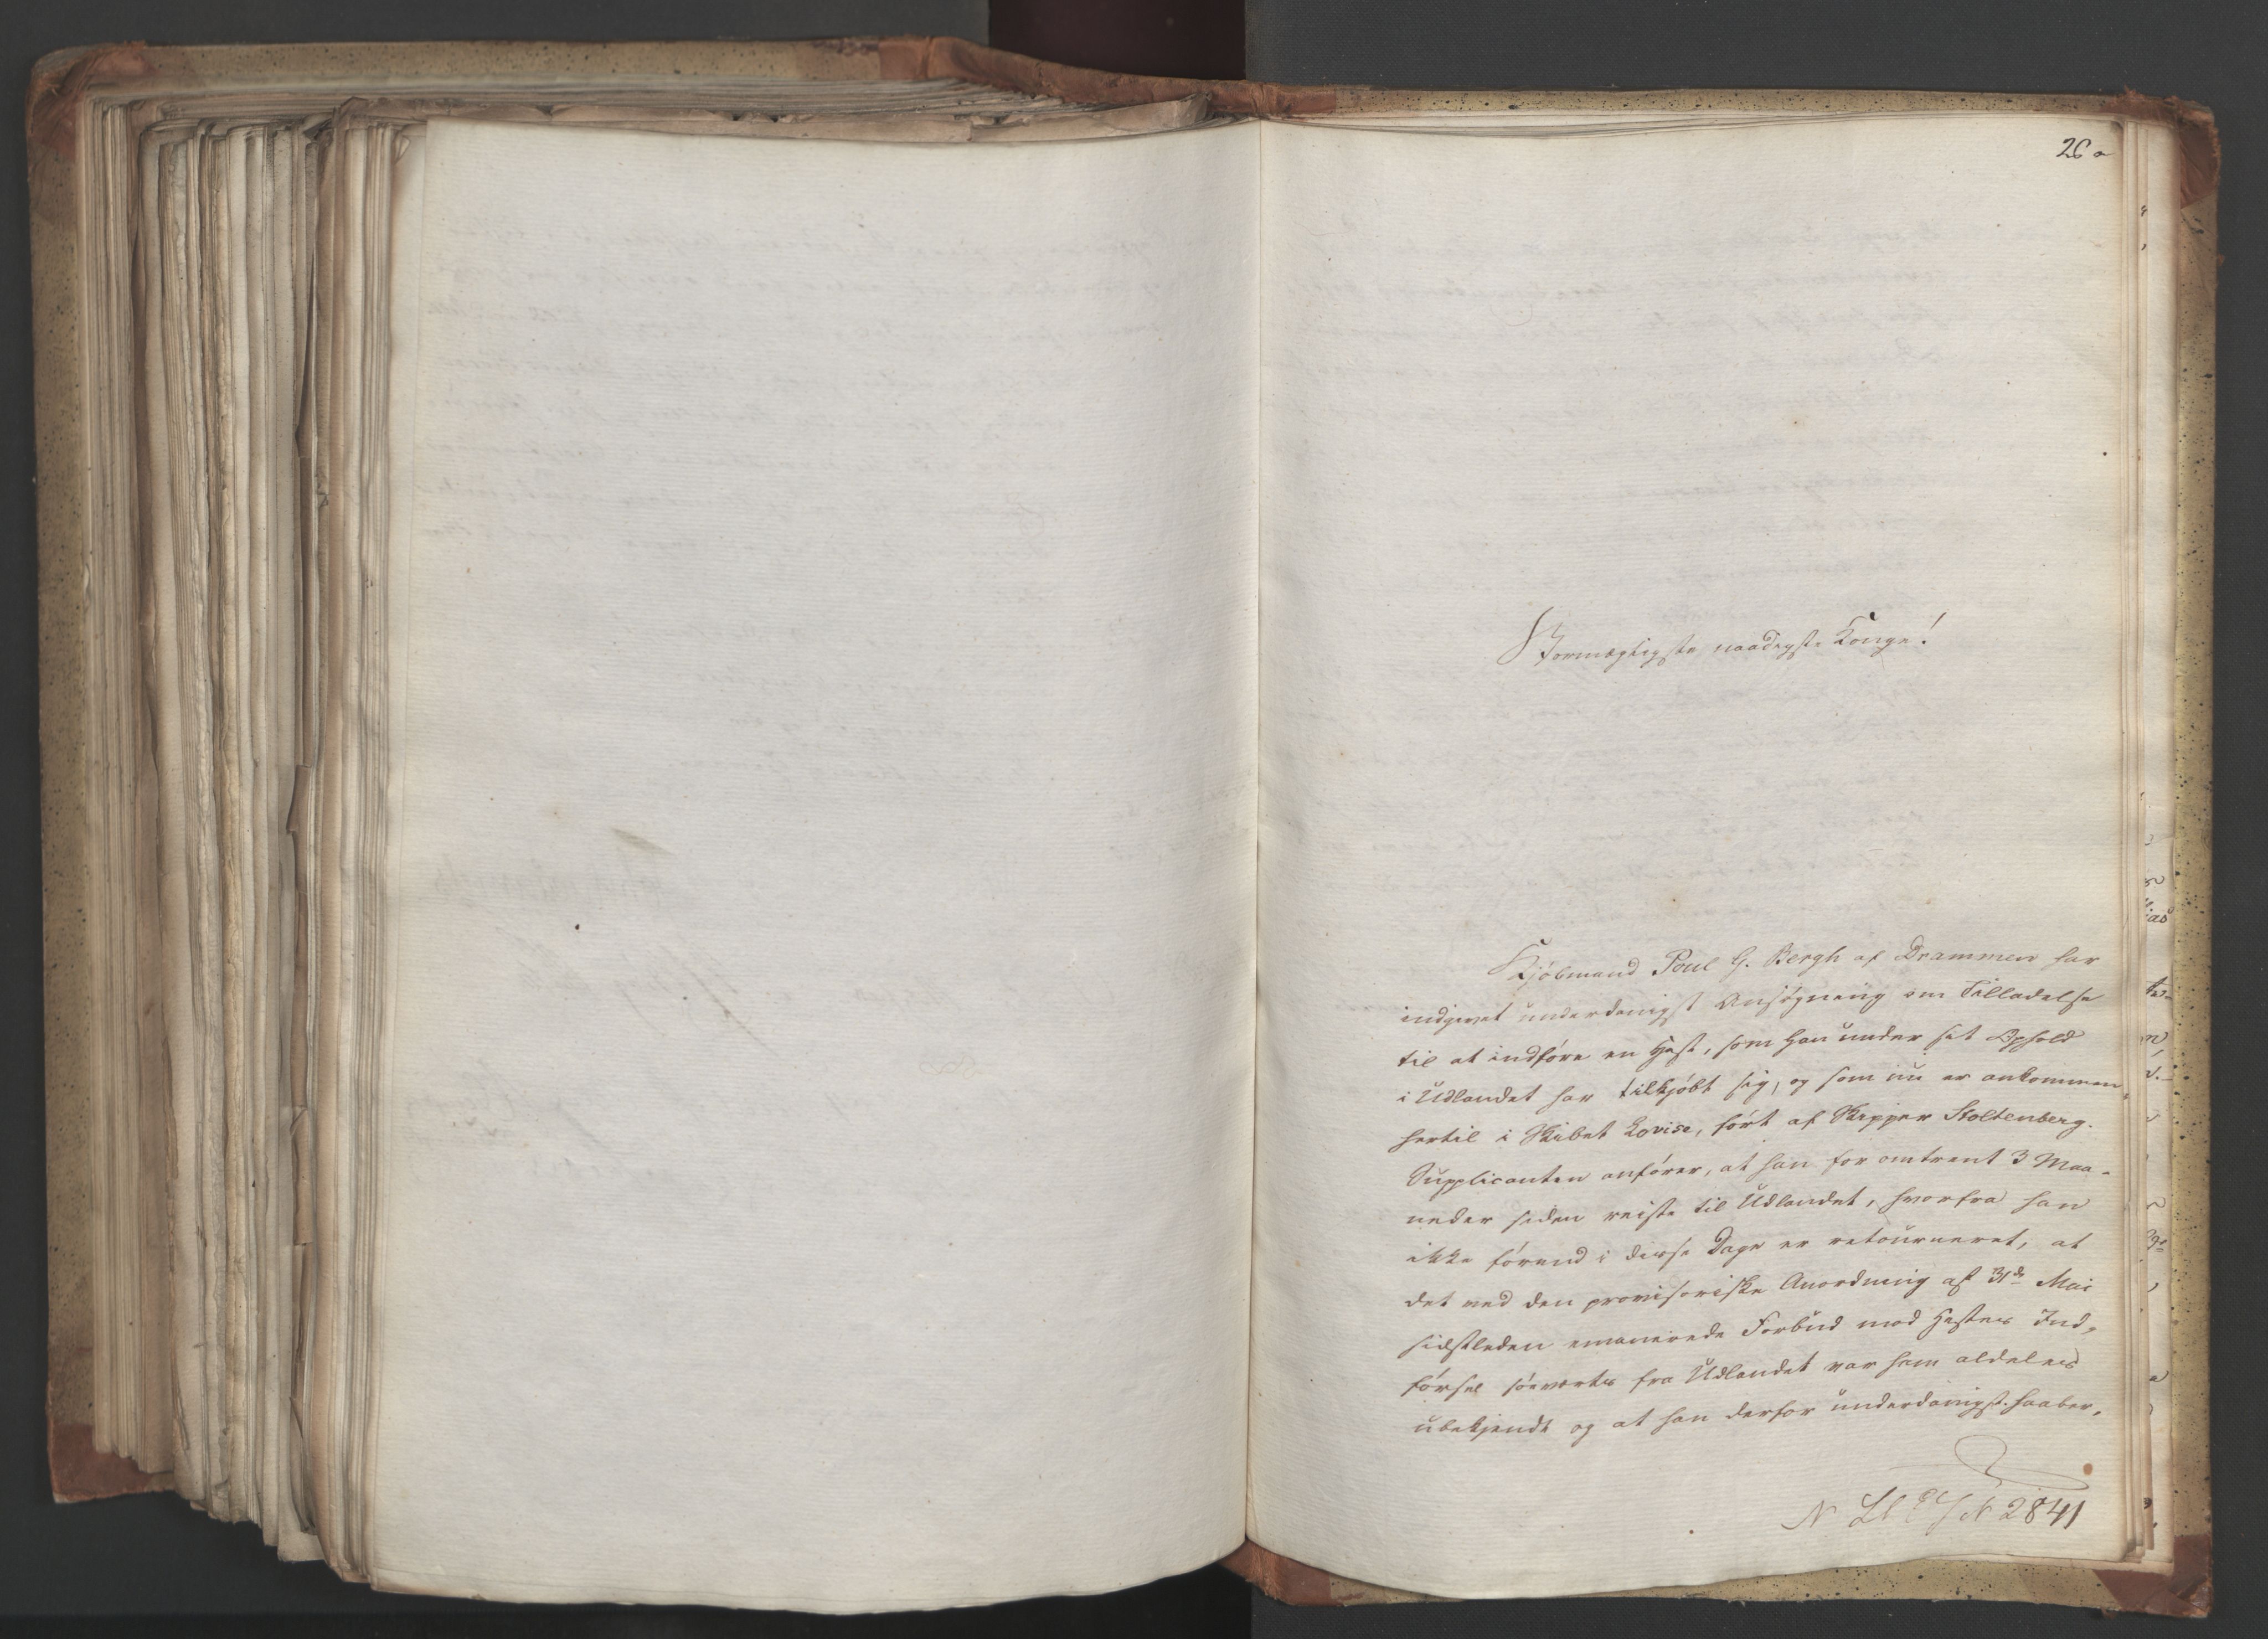 26 a
Stormægtigste naadigste Konge!
Kjøbmand Poul G. Bergh af Drammen har
indgivet underdanigst Ansøgning om Tilladelse
til at indføre en Hest, som han under sit Ophold
i Udlandet har tilkjøbt sig, og som nu er ankommen
hertil i Skibet Lovise, ført af Skipper Stoltenberg.
Supplicanten anfører, at han for omtrent 3 Maa-
neder siden reiste til Udlandet, hvorfra han
ikke førend i disse Dage er retourneret, at
det ved den provisoriske Anordning af 31de Mai
sidstleden emanerede Forbud mod Hestes Ind-
førsel søeværts fra Udlandet var ham aldeles
ubekjendt og at han derfor underdanigst haaber,
2841